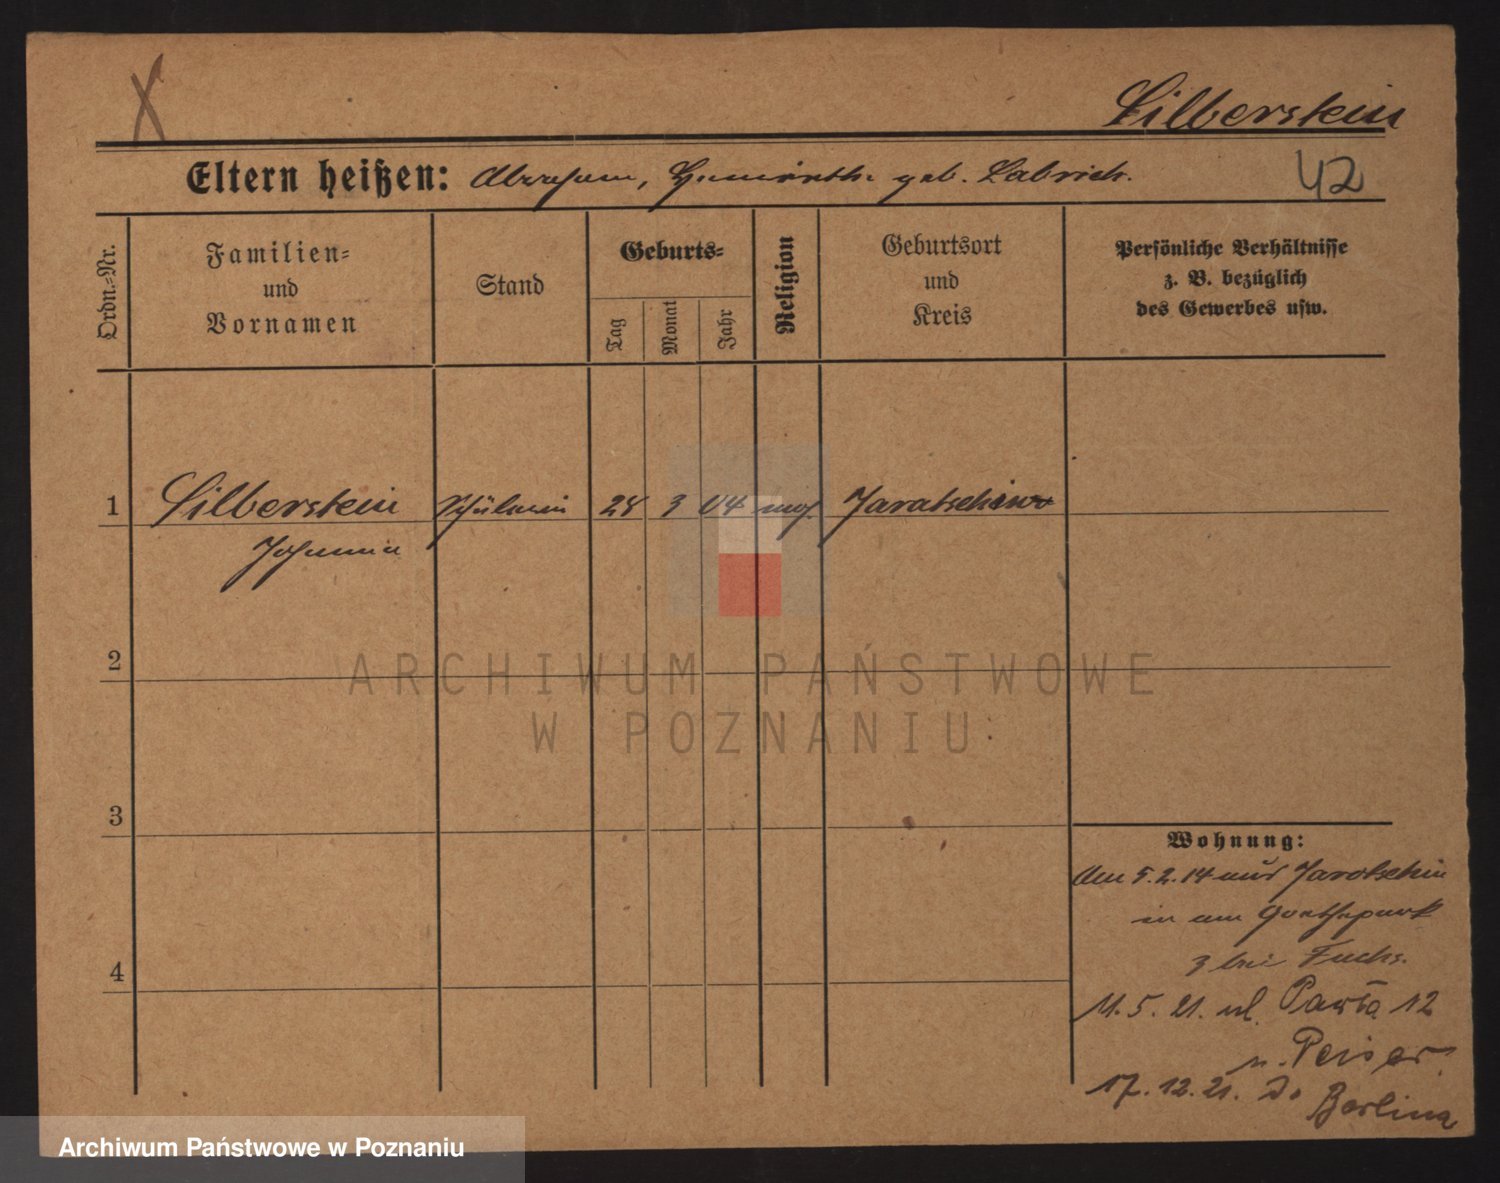 Silberstein
Eltern heißen: Abraham, geb. Labrich.
42
Ordn.-Nr.
Familien-
und
Vornamen
Stand
Geburts-
Tag
Monat
Jahr
Religion
Geburtsort
und
Kreis
Persönliche Verhältnisse
z. B. bezüglich
des Gewerbes usw.
1 Silberstein Schülerin 28 3 04 mos. Jaratschewo
Johanna
2
3
4
ARCHIWUM PAŃSTWOWE
W POZNANIU
Wohnung:
Am 5.2.14 aus Jarotschin
in am Goethepark
3 bei Fuchs.
11.5.21. ul. 12
u. Peiser.
17.12.21. Do Berlina
Archiwum Państwowe w Poznaniu